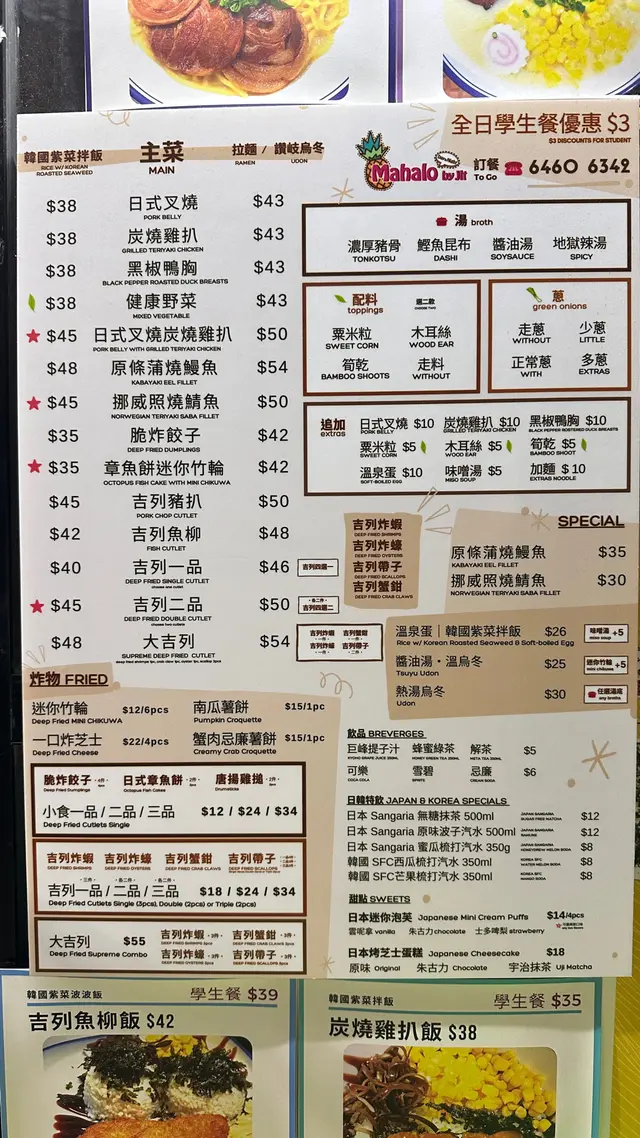 全日學生餐優惠 $3
$3 DISCOUNTS FOR STUDENT
韓國紫菜拌飯
RICE W/ KOREAN
ROASTED SEAWEED
主菜
MAIN
拉麵 / 讚岐烏冬
RAMEN UDON
Mahalo by Jit
訂餐 To Go 6460 6342
$38 日式叉燒 $43
PORK BELLY
$38 炭燒雞扒 $43
GRILLED TERIYAKI CHICKEN
$38 黑椒鴨胸 $43
BLACK PEPPER ROASTED DUCK BREASTS
$38 健康野菜 $43
MIXED VEGETABLE
$45 日式叉燒炭燒雞扒 $50
PORK BELLY WITH GRILLED TERIYAKI CHICKEN
$48 原條蒲燒鰻魚 $54
KABAYAKI EEL FILLET
$45 挪威照燒鯖魚 $50
NORWEGIAN TERIYAKI SABA FILLET
$35 脆炸餃子 $42
DEEP FRIED DUMPLINGS
$35 章魚餅迷你竹輪 $42
OCTOPUS FISH CAKE WITH MINI CHIKUWA
$45 吉列豬扒 $50
PORK CHOP CUTLET
$42 吉列魚柳 $48
FISH CUTLET
$40 吉列一品 $46 吉列四選一
DEEP FRIED SINGLE CUTLET
$45 吉列二品 $50 吉列四選二
DEEP FRIED DOUBLE CUTLET
$48 大吉列 $54
SUPREME DEEP FRIED CUTLET
吉列炸蝦 吉列蟹鉗
吉列炸蠔 吉列帶子
湯 broth
濃厚豬骨 鰹魚昆布 醬油湯 地獄辣湯
TONKOTSU DASHI SOYSAUCE SPICY
配料 選二款
toppings
粟米粒 木耳絲
SWEET CORN WOOD EAR
筍乾 走料
BAMBOO SHOOTS WITHOUT
蔥
green onions
走蔥 少蔥
WITHOUT LITTLE
正常蔥 多蔥
WITH EXTRAS
追加
extras
日式叉燒 $10 炭燒雞扒 $10 黑椒鴨胸 $10
PORK BELLY GRILLED TERIYAKI CHICKEN BLACK PEPPER ROSTERED DUCK BREASTS
粟米粒 $5 木耳絲 $5 筍乾 $5
SWEET CORN WOOD EAR BAMBOO SHOOT
溫泉蛋 $10 味噌湯 $5 加麵 $10
SOFT-BOILED EGG MISO SOUP EXTRAS NOODLE
吉列炸蝦
DEEP FRIED SHRIMPS
吉列炸蠔
DEEP FRIED OYSTERS
吉列帶子
DEEP FRIED SCALLOPS
吉列蟹鉗
DEEP FRIED CRAB CLAWS
SPECIAL
原條蒲燒鰻魚 $35
KABAYAKI EEL FILLET
挪威照燒鯖魚 $30
NORWEGIAN TERIYAKI SABA FILLET
溫泉蛋|韓國紫菜拌飯 $26 味噌湯 miso soup +5
Rice w/ Korean Roasted Seaweed & Soft-boiled Egg
醬油湯・溫烏冬 $25 迷你竹輪 mini chikuwa +5
Tsuyu Udon
熱湯烏冬 $30 任選湯底 any broths
Udon
炸物 FRIED
迷你竹輪 $12/6pcs 南瓜薯餅 $15/1pc
Deep Fried MINI CHIKUWA Pumpkin Croquette
一口炸芝士 $22/4pcs 蟹肉忌廉薯餅 $15/1pc
Deep Fried Cheese Creamy Crab Croquette
脆炸餃子 日式章魚餅 唐揚雞搥
Deep Fried Dumplings Octopus Fish Cakes Drumsticks
小食一品 / 二品 / 三品 $12 / $24 / $34
Deep Fried Cutlets Single
吉列炸蝦 吉列炸蠔 吉列蟹鉗 吉列帶子
DEEP FRIED SHRIMPS DEEP FRIED OYSTERS DEEP FRIED CRAB CLAWS
吉列一品 / 二品 / 三品 $18 / $24 / $34
Deep Fried Cutlets Single (3pcs), Double (2pcs) or Triple (2pcs)
大吉列 $55
Deep Fried Supreme Combo
吉列炸蝦 吉列蟹鉗
吉列炸蠔 吉列帶子
飲品 BREVERGES
巨峰提子汁 蜂蜜綠茶 解茶 $5
KYOHO GRAPE JUICE 250ML HONEY GREEN TEA 250ML META TEA 250ML
可樂 雪碧 忌廉 $6
COCA COLA SPRITE CREAM SODA
日韓特飲 JAPAN & KOREA SPECIALS
日本 Sangaria 無糖抹茶 500ml JAPAN SANGARIA SUGAR FREE MATCHA $12
日本 Sangaria 原味波子汽水 500ml JAPAN SANGARIA RAMUNE $12
日本 Sangaria 蜜瓜梳打汽水 350g JAPAN SANGARIA HONEYDEW MELON SODA $8
韓國 SFC西瓜梳打汽水 350ml KOREA SFC WATER MELON SODA $8
韓國 SFC芒果梳打汽水 350ml KOREA SFC MANGO SODA $8
甜點 SWEETS
日本迷你泡芙 Japanese Mini Cream Puffs $14/4pcs
雲呢拿 vanilla 朱古力 chocolate 士多啤梨 strawberry
日本烤芝士蛋糕 Japanese Cheesecake $18
原味 Original 朱古力 Chocolate 宇治抹茶 Uji Matcha
韓國紫菜波波飯 學生餐 $39
吉列魚柳飯 $42
韓國紫菜拌飯 學生餐 $35
炭燒雞扒飯 $38